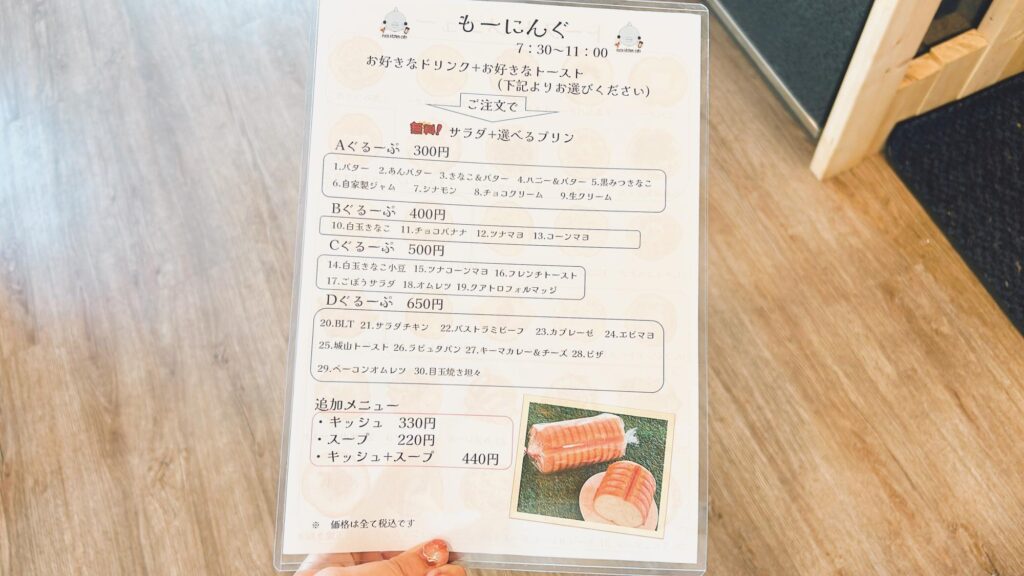 もーにんぐ
7：30～11：00
お好きなドリンク+お好きなトースト
（下記よりお選びください）
ご注文で
無料! サラダ+選べるプリン
Aぐるーぷ 300円
1.バター 2.あんバター 3.きなこ&バター 4.ハニー&バター 5.黒みつきなこ
6.自家製ジャム 7.シナモン 8.チョコクリーム 9.生クリーム
Bぐるーぷ 400円
10.白玉きなこ 11.チョコバナナ 12.ツナマヨ 13.コーンマヨ
Cぐるーぷ 500円
14.白玉きなこ小豆 15.ツナコーンマヨ 16.フレンチトースト
17.ごぼうサラダ 18.オムレツ 19.クアトロフォルマッジ
Dぐるーぷ 650円
20.BLT 21.サラダチキン 22.パストラミビーフ 23.カプレーゼ 24.エビマヨ
25.城山トースト 26.ラピュタパン 27.キーマカレー&チーズ 28.ピザ
29.ベーコンオムレツ 30.目玉焼き坦々
追加メニュー
・キッシュ 330円
・スープ 220円
・キッシュ+スープ 440円
※ 価格は全て税込です